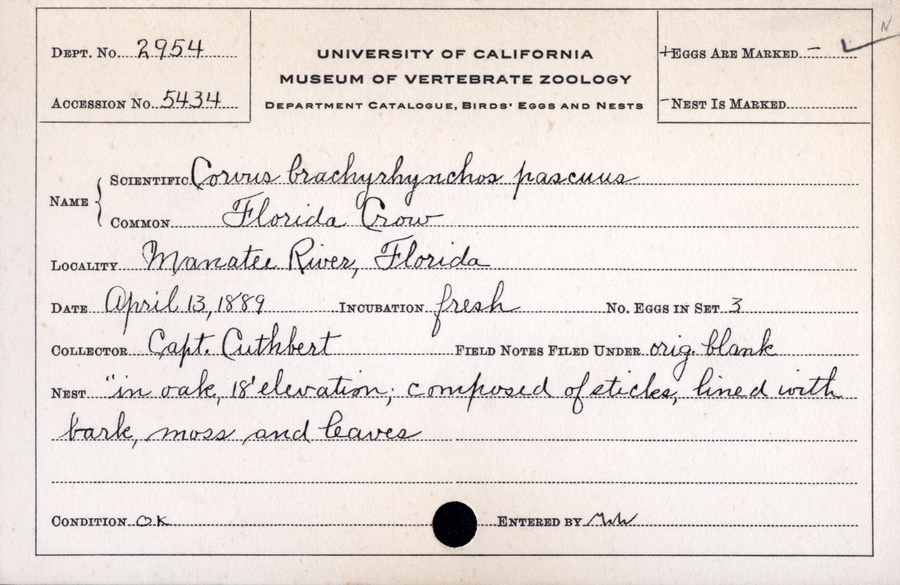 Dept. No. 2954
Accession No. 5434
UNIVERSITY OF CALIFORNIA
MUSEUM OF VERTEBRATE ZOOLOGY
Department Catalogue, Birds' Eggs and Nests
N
+Eggs Are Marked -
-Nest Is Marked
Name
Scientific Corvus brachyrhynchos pascuus
Common Florida Crow
Locality Manatee River, Florida
Date April 13, 1889 Incubation fresh No. Eggs in Set 3
Collector Capt. Cuthbert Field Notes Filed Under orig. blank
Nest "in oak, 18' elevation; composed of sticks, lined with
bark, moss and leaves
Condition OK Entered by